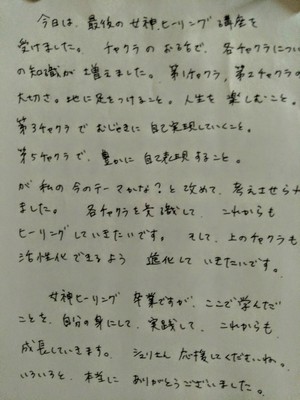 今日は、最後の女神ヒーリング講座を
受けました。チャクラのおさらいで、各チャクラについて
の知識が増えました。第1チャクラ、第2チャクラの
大切さ。地に足をつけること。人生を楽しむこと。
第3チャクラでむじゃきに自己実現していくこと。
第5チャクラで、豊かに自己表現すること。
が私の今のテーマかな?と改めて、考えさせられ
ました。各チャクラを意識して、これからも
ヒーリングしていきたいです。そして、上のチャクラも
活性化できるよう進化していきたいです。
女神ヒーリング卒業ですが、ここで学んだ
ことを、自分の身にして、実践して、これからも
成長していきます。ジュリさん応援してくださいね。
いろいろと、本当にありがとうございました。